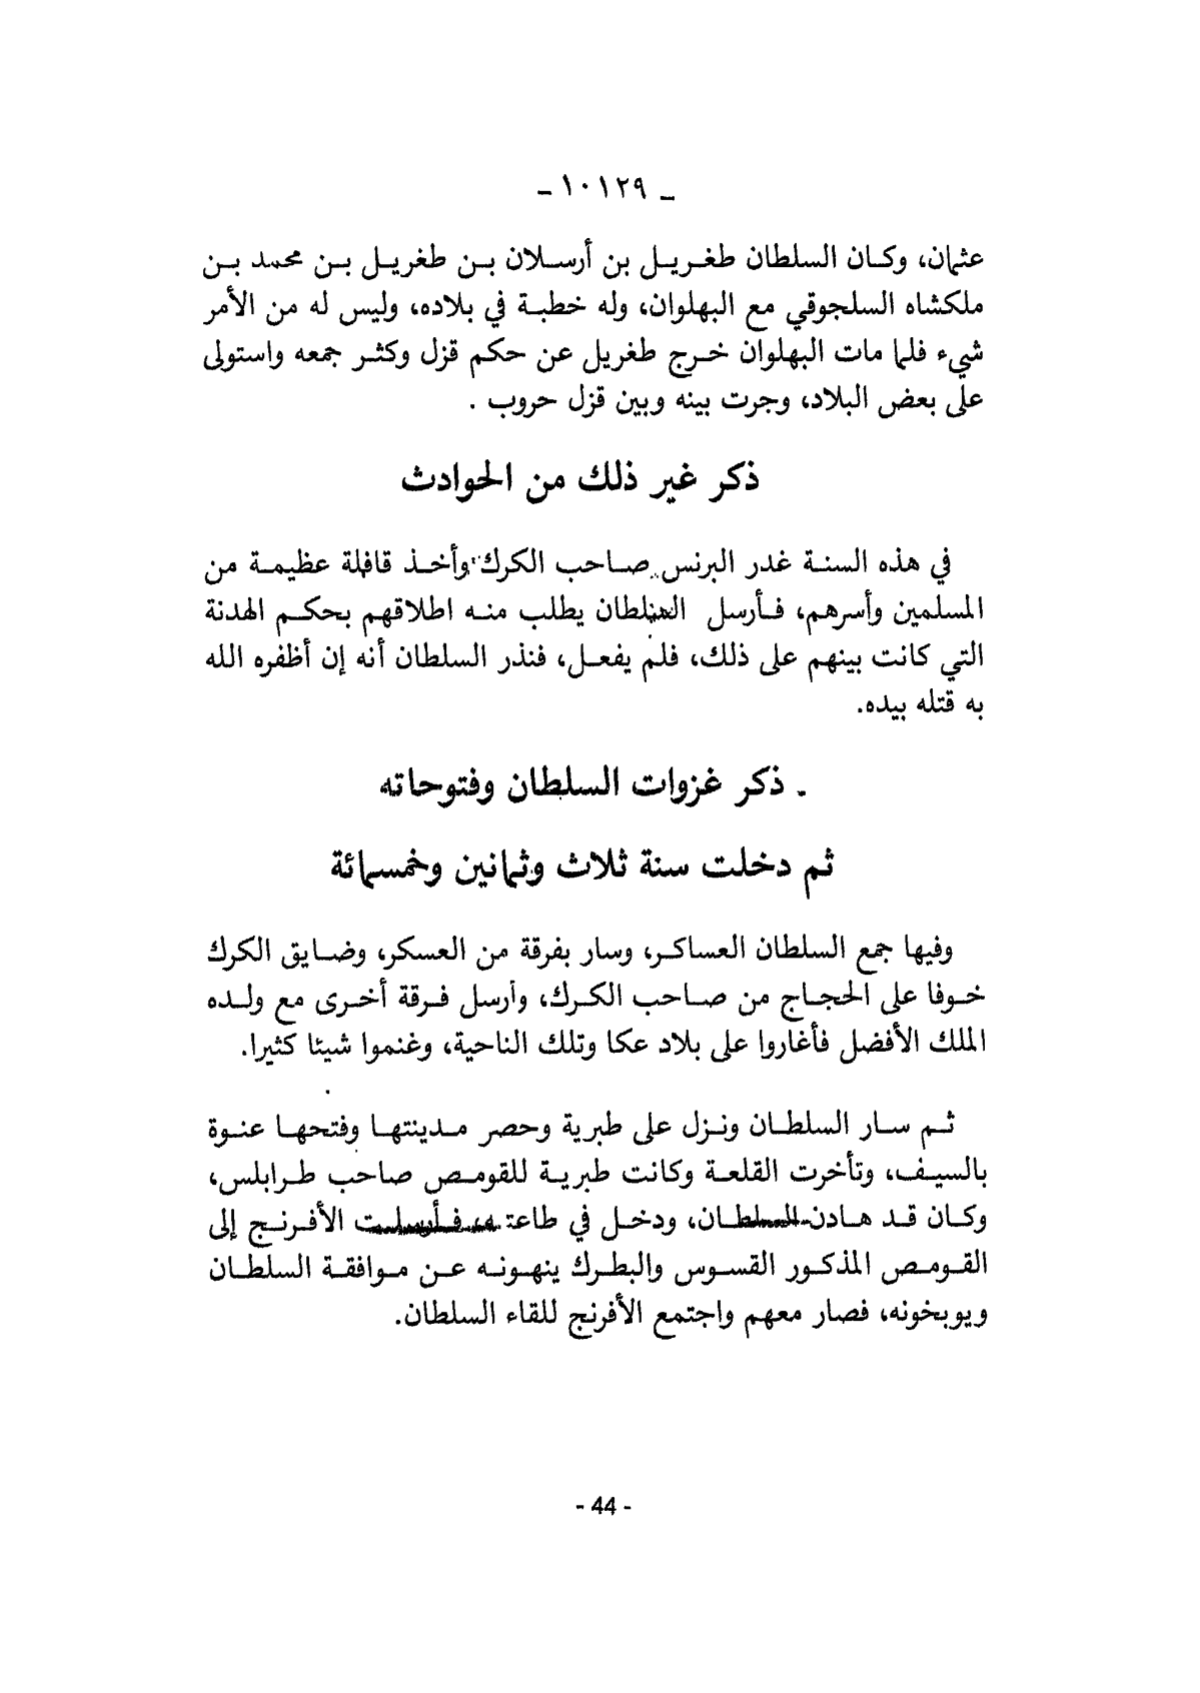 ـ ١٠١٢٩ ـ
عثمان، وكان السلطان طغريل بن أرسلان بن طغريل بن محمد بن
ملكشاه السلجوقي مع البهلوان، وله خطبة في بلاده، وليس له من الأمر
شيء فلما مات البهلوان خرج طغريل عن حكم قزل وكثر جمعه واستولى
على بعض البلاد، وجرت بينه وبين قزل حروب .
ذكر غير ذلك من الحوادث
في هذه السنة غدر البرنس صاحب الكرك وأخذ قافلة عظيمة من
المسلمين وأسرهم، فأرسل السلطان يطلب منه اطلاقهم بحكم الهدنة
التي كانت بينهم على ذلك، فلم يفعل، فنذر السلطان أنه إن أظفره الله
به قتله بيده.
ـ ذكر غزوات السلطان وفتوحاته
ثم دخلت سنة ثلاث وثمانين وخمسمائة
وفيها جمع السلطان العساكر، وسار بفرقة من العسكر، وضايق الكرك
خوفا على الحجاج من صاحب الكرك، وأرسل فرقة أخرى مع ولده
الملك الأفضل فأغاروا على بلاد عكا وتلك الناحية، وغنموا شيئا كثيرا.
ثم سار السلطان ونزل على طبرية وحصر مدينتها وفتحها عنوة
بالسيف، وتأخرت القلعة وكانت طبرية للقومص صاحب طرابلس،
وكان قد هادن السلطان، ودخل في طاعته، فأرسلت الأفرنج إلى
القومص المذكور القسوس والبطرك ينهونه عن موافقة السلطان
ويوبخونه، فصار معهم واجتمع الأفرنج للقاء السلطان.
- 44 -